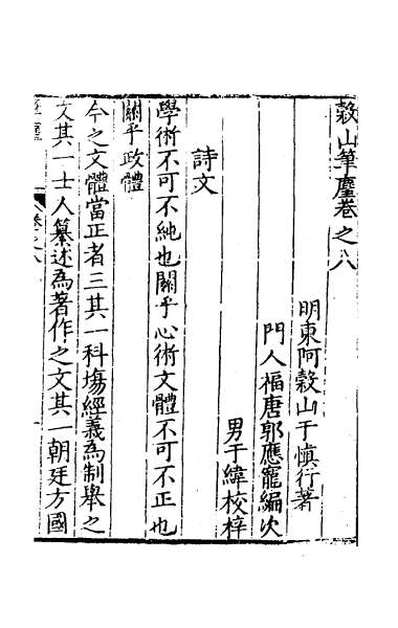 穀山筆麈卷之八
明東阿穀山于愼行著
門人福唐郭應寵編次
男于緯校梓
詩文
學術不可不純也關乎心術文體不可不正也
關乎政體
今之文體當正者三其一科塲經義為制舉之
文其一士人纂述為著作之文其一朝廷方國
卷之八